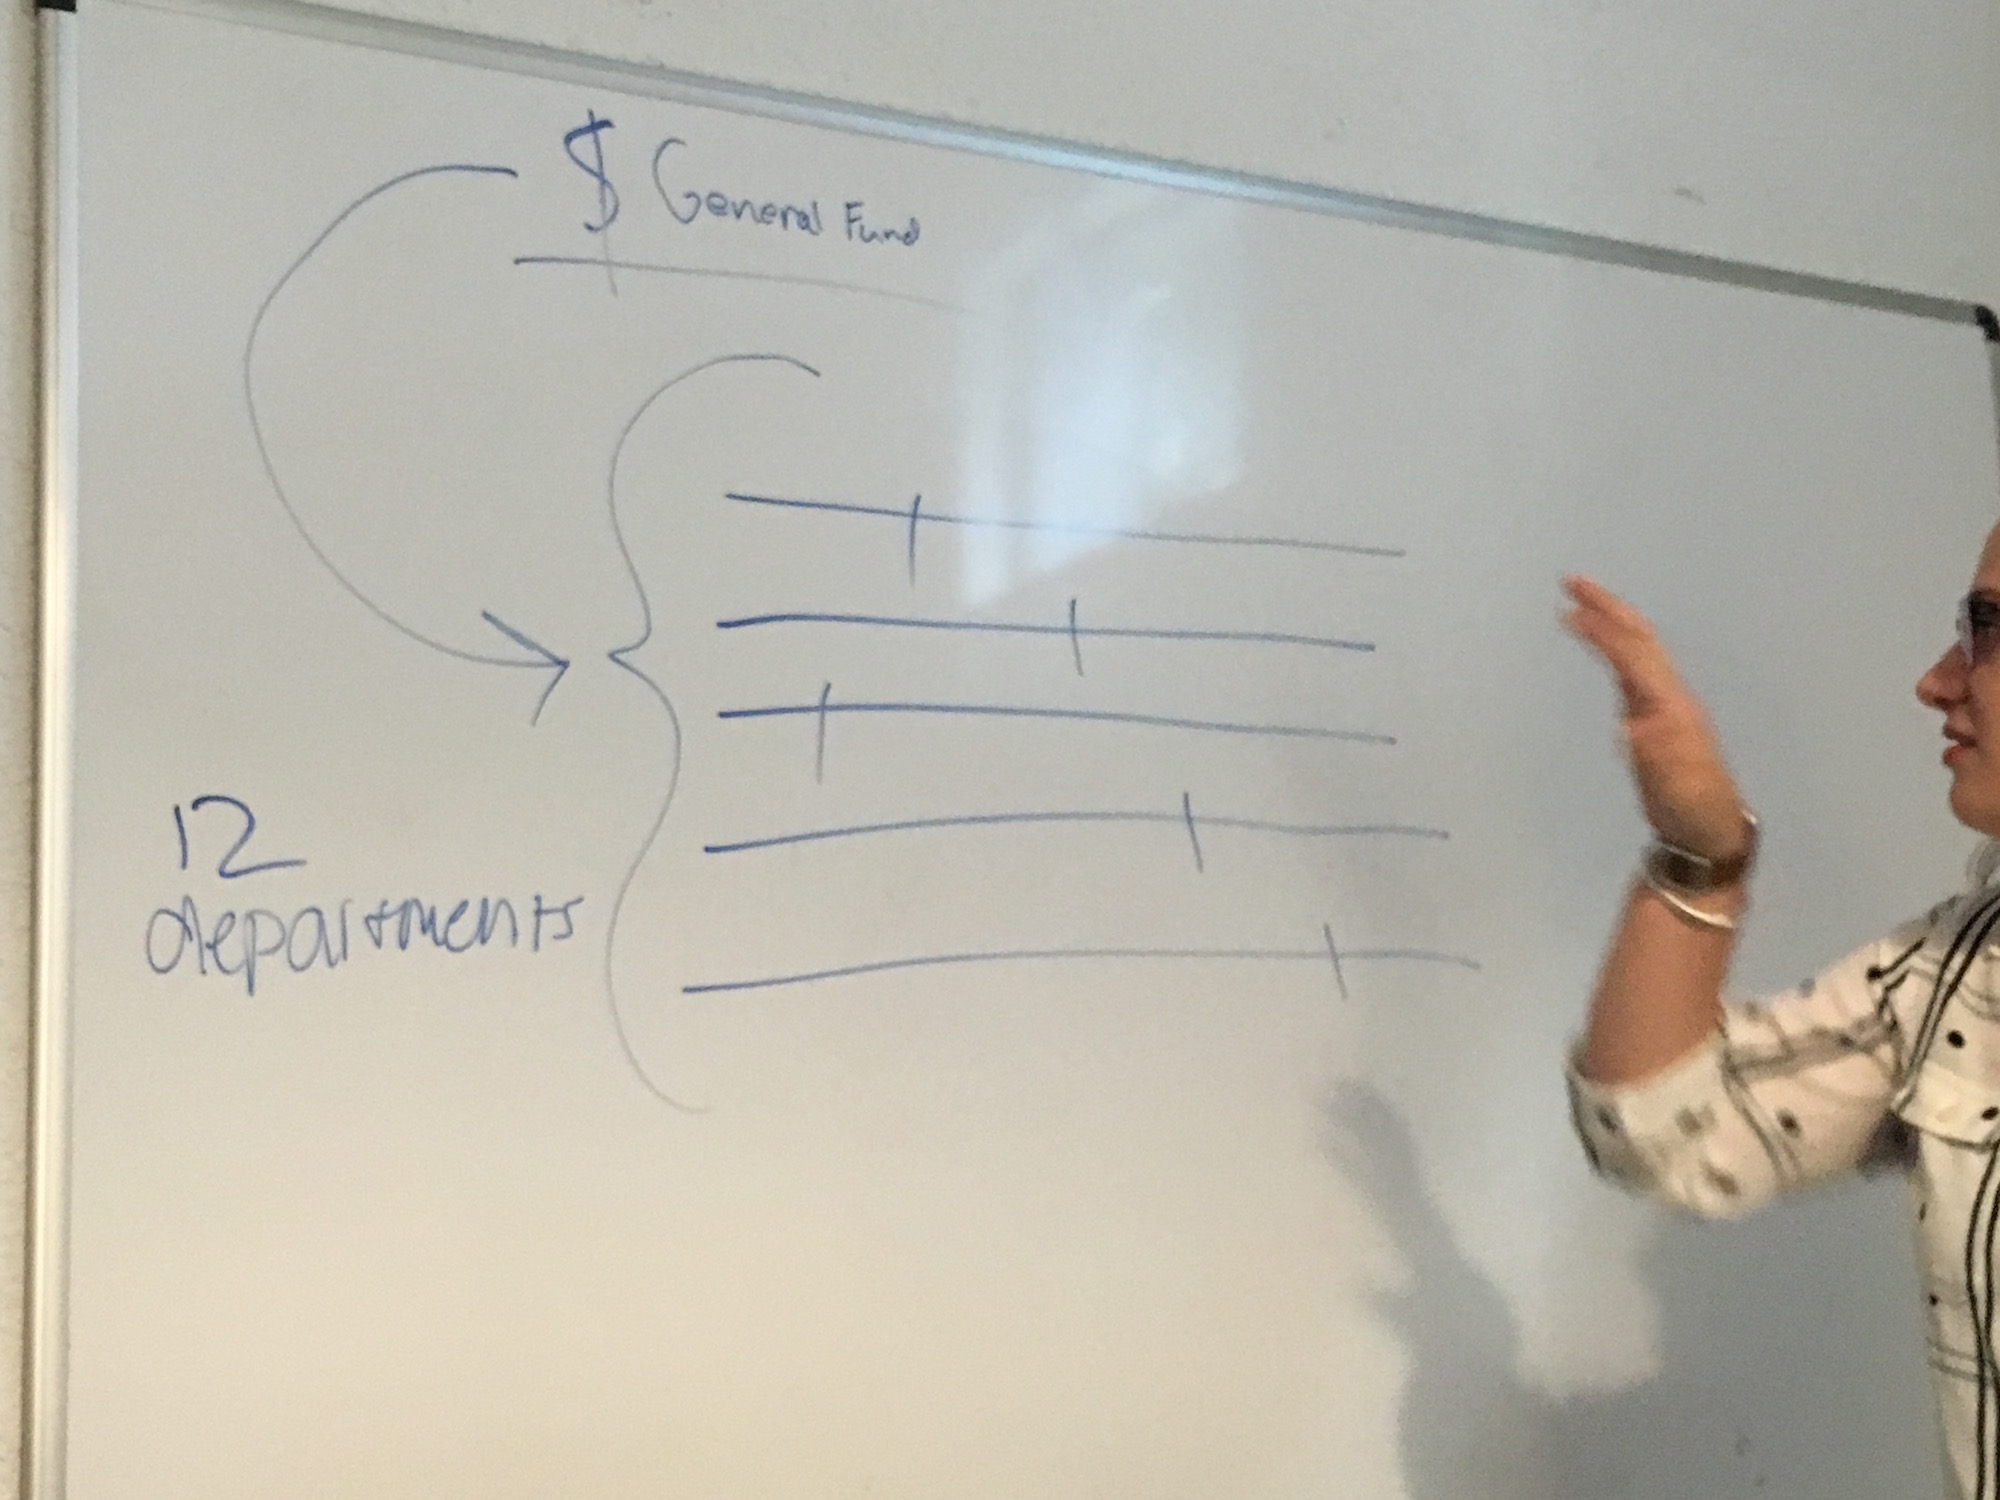 $ General Fund
12
departments